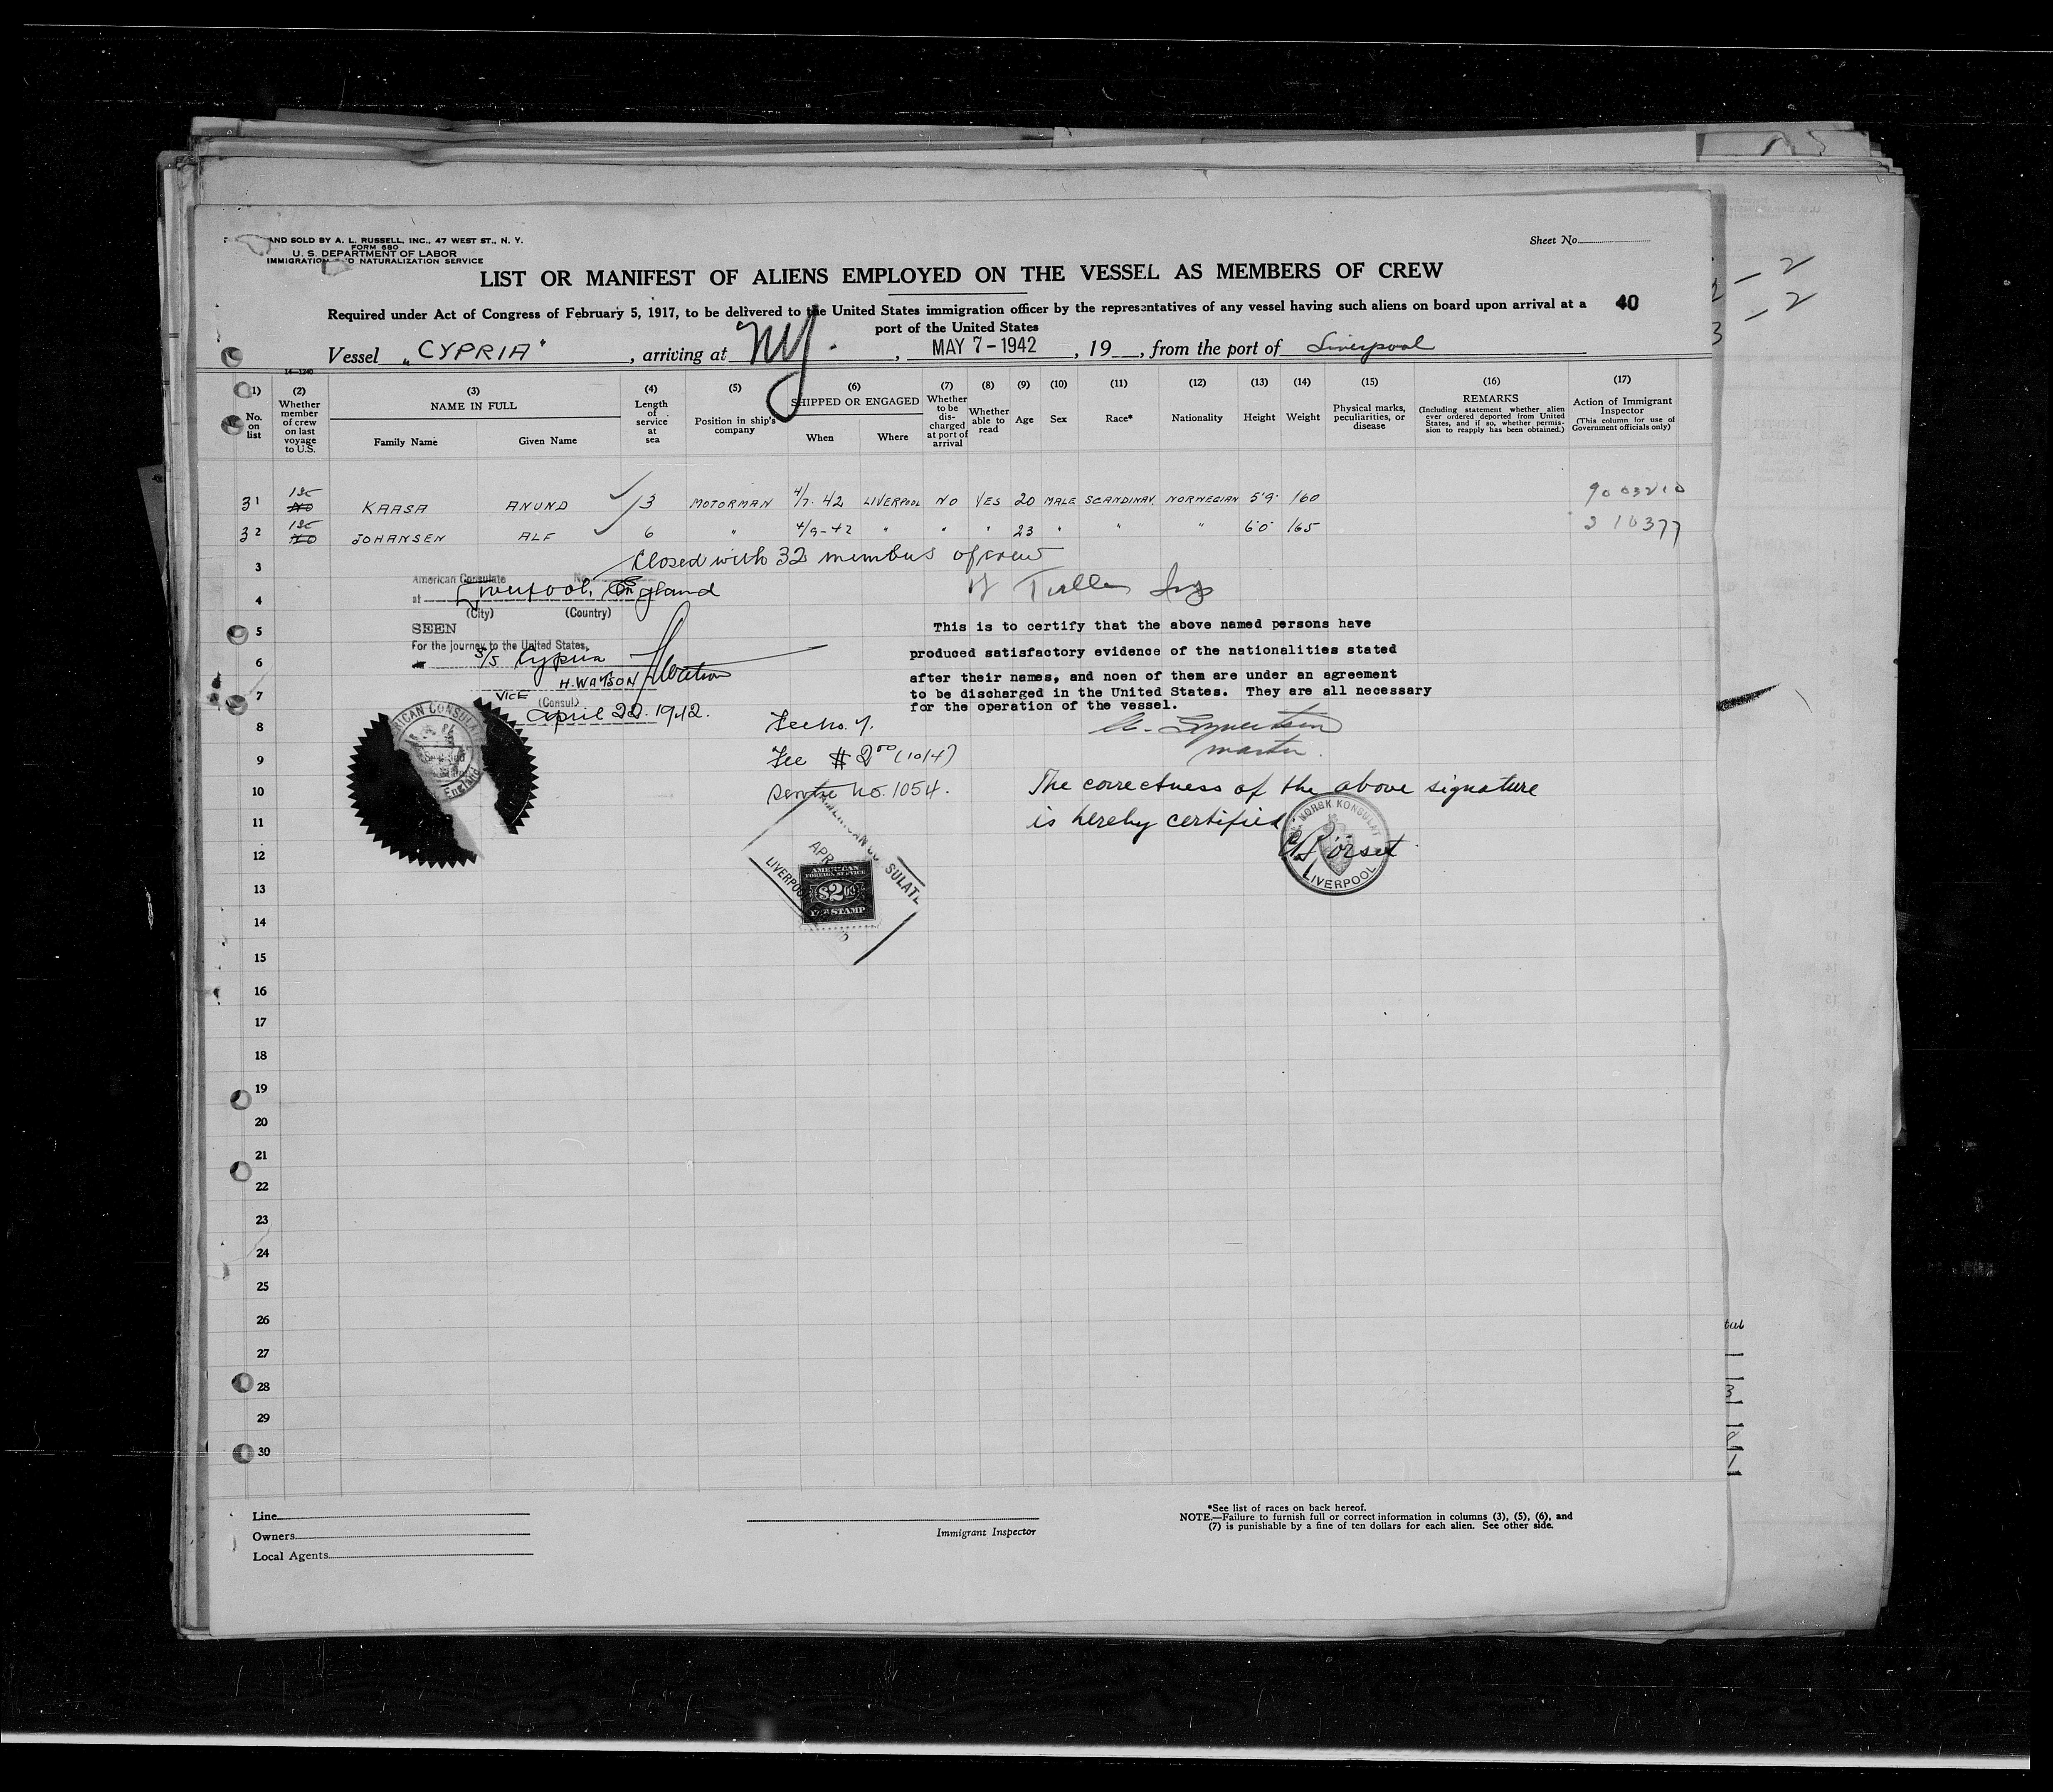 AND SOLD BY A. L. RUSSELL, INC., 47 WEST ST., N. Y.
FORM 680
U. S. DEPARTMENT OF LABOR
IMMIGRATION AND NATURALIZATION SERVICE
Sheet No.
LIST OR MANIFEST OF ALIENS EMPLOYED ON THE VESSEL AS MEMBERS OF CREW
Required under Act of Congress of February 5, 1917, to be delivered to the United States immigration officer by the representatives of any vessel having such aliens on board upon arrival at a port of the United States
40
Vessel "CYPRIA", arriving at NY., MAY 7-1942, 19__, from the port of Liverpool
14-1240
(1) No. on list
(2) Whether member of crew on last voyage to U.S.
(3) NAME IN FULL Family Name Given Name
(4) Length of service at sea
(5) Position in ship's company
(6) SHIPPED OR ENGAGED When Where
(7) Whether to be discharged at port of arrival
(8) Whether able to read
(9) Age
(10) Sex
(11) Race*
(12) Nationality
(13) Height
(14) Weight
(15) Physical marks, peculiarities, or disease
(16) REMARKS (Including statement whether alien ever ordered deported from United States, and if so, whether permission to reapply has been obtained.)
(17) Action of Immigrant Inspector (This column for use of Government officials only)
31 NO KAASA ANUND 3 MOTORMAN 4/7-42 LIVERPOOL NO YES 20 MALE SCANDINAV. NORWEGIAN 5'9" 160
32 NO JOHANSEN ALF 6 " 4/9-42 " " " 23 " " " 6'0" 165 210377
3 Closed with 32 members of crew
4
American Consulate No.
at Liverpool, England
(City) (Country)
5 SEEN
For the journey to the United States,
6 S/S Cypria
H. WATSON HWatson
7 VICE (Consul)
April 22. 1942.
This is to certify that the above named persons have
produced satisfactory evidence of the nationalities stated
after their names, and noen of them are under an agreement
to be discharged in the United States. They are all necessary
for the operation of the vessel.
master.
8 Fee No. 7.
9 Fee $2.00 (10/4)
10 Service No. 1054.
The correctness of the above signature
11 is hereby certified
NORSK KONSULAT
LIVERPOOL
AMERICAN CONSULATE
APR
LIVERPOOL
AMERICAN
FOREIGN SERVICE
$2.00
FEE STAMP
AMERICAN CONSULATE
England
12
13
14
15
16
17
18
19
20
21
22
23
24
25
26
27
28
29
30
Line
Owners
Local Agents
Immigrant Inspector
*See list of races on back hereof.
NOTE.—Failure to furnish full or correct information in columns (3), (5), (6), and
(7) is punishable by a fine of ten dollars for each alien. See other side.